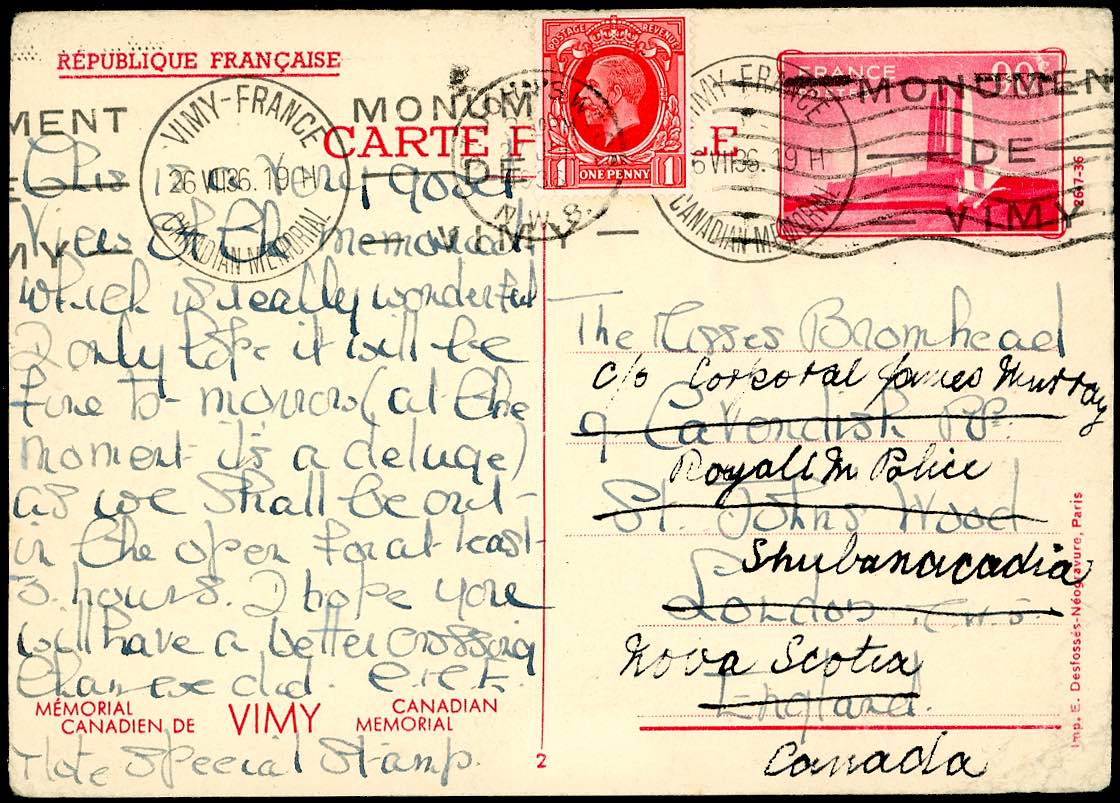 RÉPUBLIQUE FRANÇAISE
CARTE P LE
POSTAGE REVENUE
1 ONE PENNY 1
FRANCE
90c
MENT
VIMY-FRANCE
26 VII 36. 19 H
CANADIAN MEMORIAL
MONUM
DE
VIMY
N.W.8.
VIMY-FRANCE
6 VII 36. 19 H
CANADIAN MEMORIAL
MONUMEN
DE
VIMY
26-7-36
This is a very good
View of the memorial
which is really wonderful
I only hope it will be
fine to-morrow (at the
moment it's a deluge)
as we shall be out-
in the open for at least
3 hours. I hope you
will have a better crossing
than we did.
MÉMORIAL
CANADIEN DE
VIMY
CANADIAN
MEMORIAL
Note Special Stamp.
2
The Misses Bromhead
c/o Corporal James Murray
9 Cavendish
Royall M Police
St. Johns Wood
Shubanacadia
London
Nova Scotia
England.
Canada
Imp. E. Desfossés-Néogravure, Paris